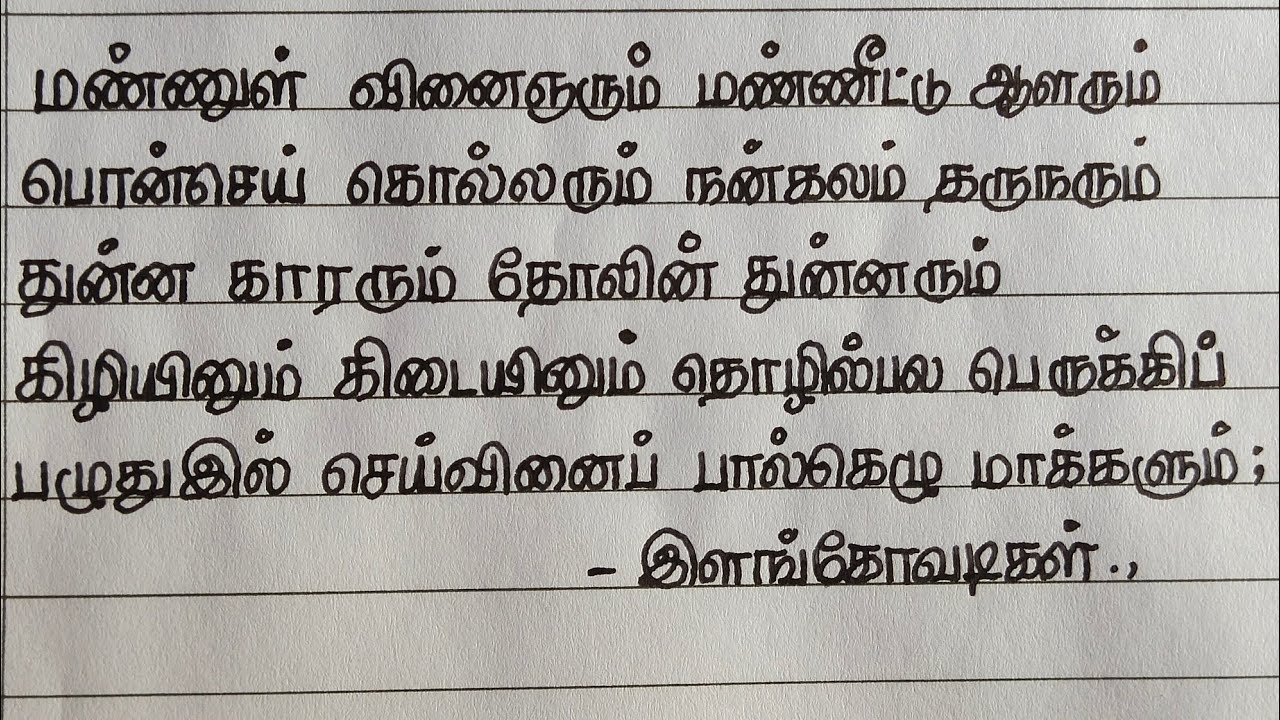 மண்ணுள் வினைஞரும் மண்ணீட்டு ஆளரும்
பொன்செய் கொல்லரும் நன்கலம் தருநரும்
துன்ன காரரும் தோலின் துன்னரும்
கிழியினும் கிடையினும் தொழில்பல பெருக்கிப்
பழுதுஇல் செய்வினைப் பால்கெழு மாக்களும்;
- இளங்கோவடிகள்.,